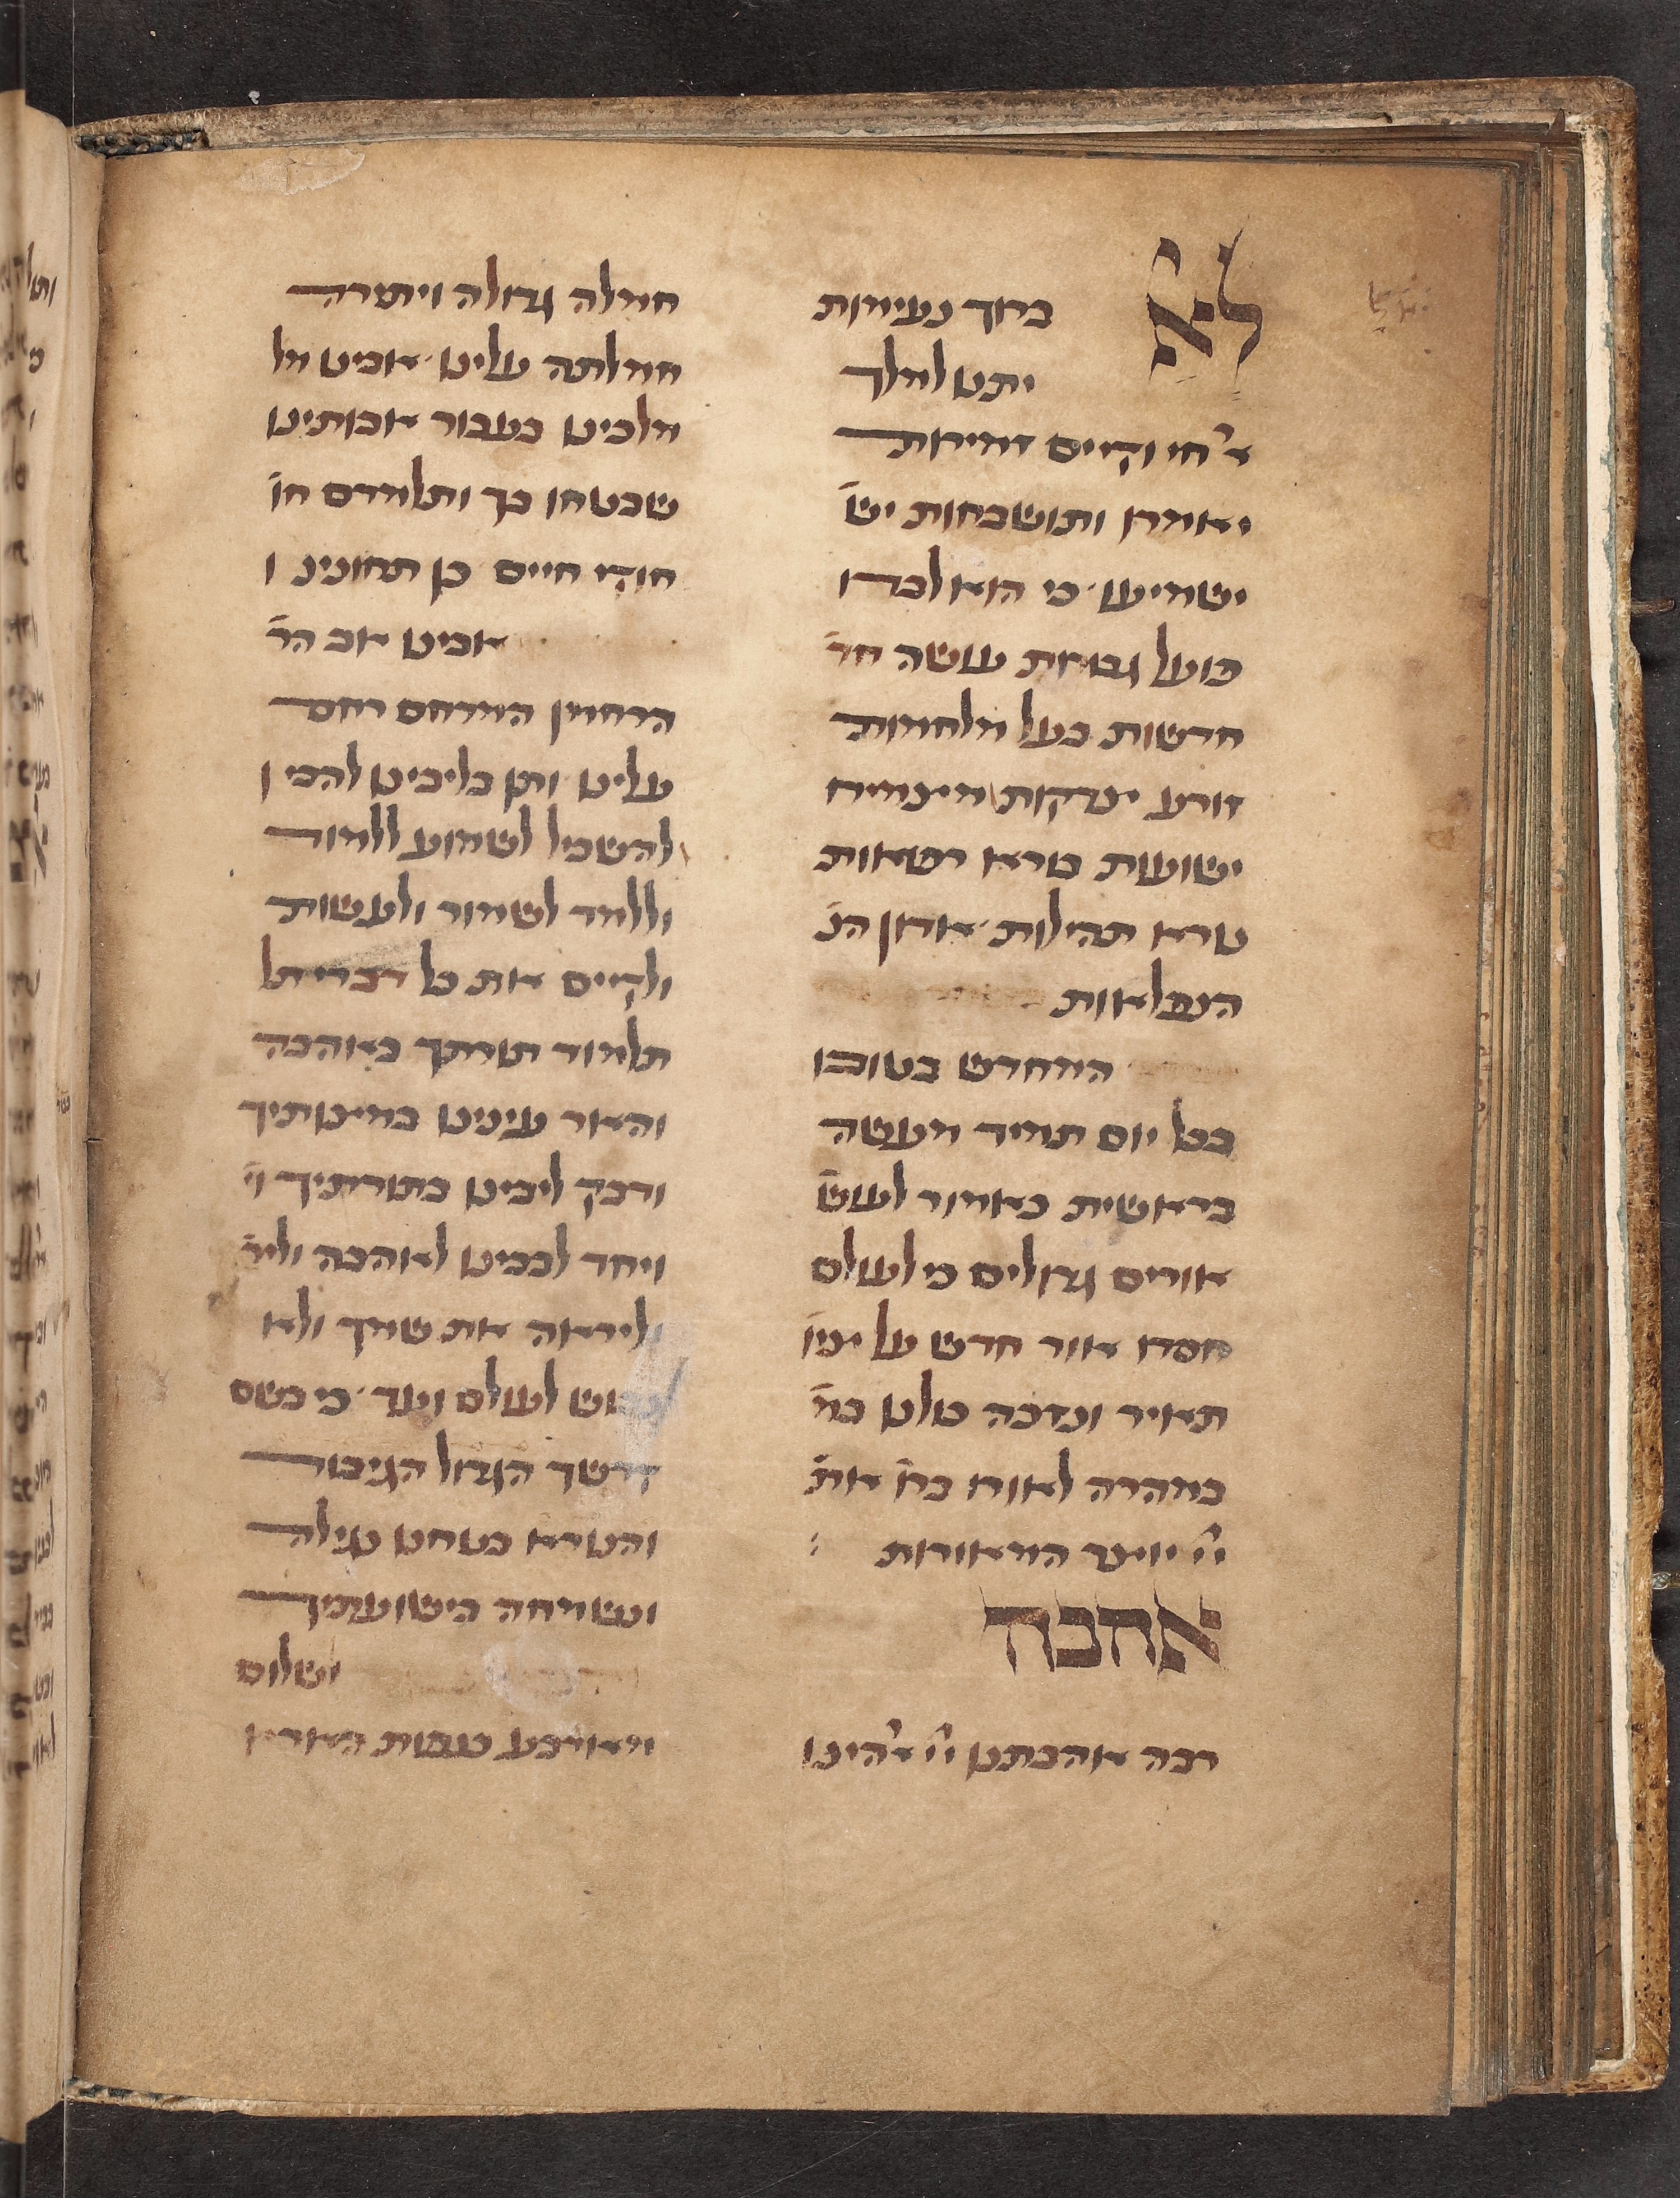 לא
ברוך נעימות
יתנו למלך
א׳ חי וקיים זמירות
יאמרו ותושבחות יש׳
ישמיעו׳ כי הוא לבדו
פועל גבורות עושה חד׳
חדשות בעל מלחמות
זורע צדקות מצמיח
ישועות בורא רפואות
נורא תהילות׳ אדון הנ׳
הנפלאות
המחדש בטובו
בכל יום תמיד מעשה
בראשית כאמור לעוש׳
אורים גדולים כי לעולם
חסדו אור חדש על ציו׳
תאיר ונזכה כולנו במ׳
במהרה לאורו בר׳ את׳
יי׳ יוצר המאורות :
אהבה
רבה אהבתנו יי׳ א׳הינו
חמלה גדולה ויתירה
חמלתה עלינו׳ אבינו מל
מלכינו בעבור אבותינו
שבטחו בך ותלמדם חו׳
חוקי חיים כן תחונינו
אבינו אב הר׳
הרחמן המרחם רחם
עלינו ותן בליבינו להבין
להשכיל לשמוע ללמוד
וללמד לשמור ולעשות
ולקיים את כל דברי תל
תלמוד תורתך באהבה
והאר עינינו במצותיך
ודבק ליבינו בתורתיך וי׳
ויחד לבבינו לאהבה וליר׳
וליראה את שמך ולא
נבוש לעולם ועד׳ כי בשם
קדשך הגדול הגיבור
והנורא בטחנו נגילה
ונשמחה בישועתיך
ושלום
מארבע כנפות הארץ